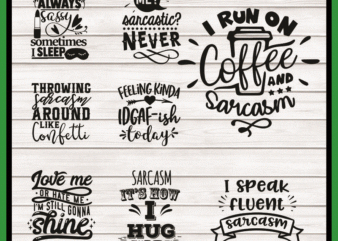 ALWAYS
Sassy
sometimes
I SLEEP
ME?
sarcastic?
NEVER
I RUN ON
Coffee
AND
Sarcasm
THROWING
Sarcasm
AROUND
LIKE
Confetti
FEELING KINDA
IDGAF-ish
today
Love me
OR HATE ME
I'M STILL GONNA
Shine
SARCASM
IT'S HOW
I
HUG
I SPEAK
fluent
sarcasm